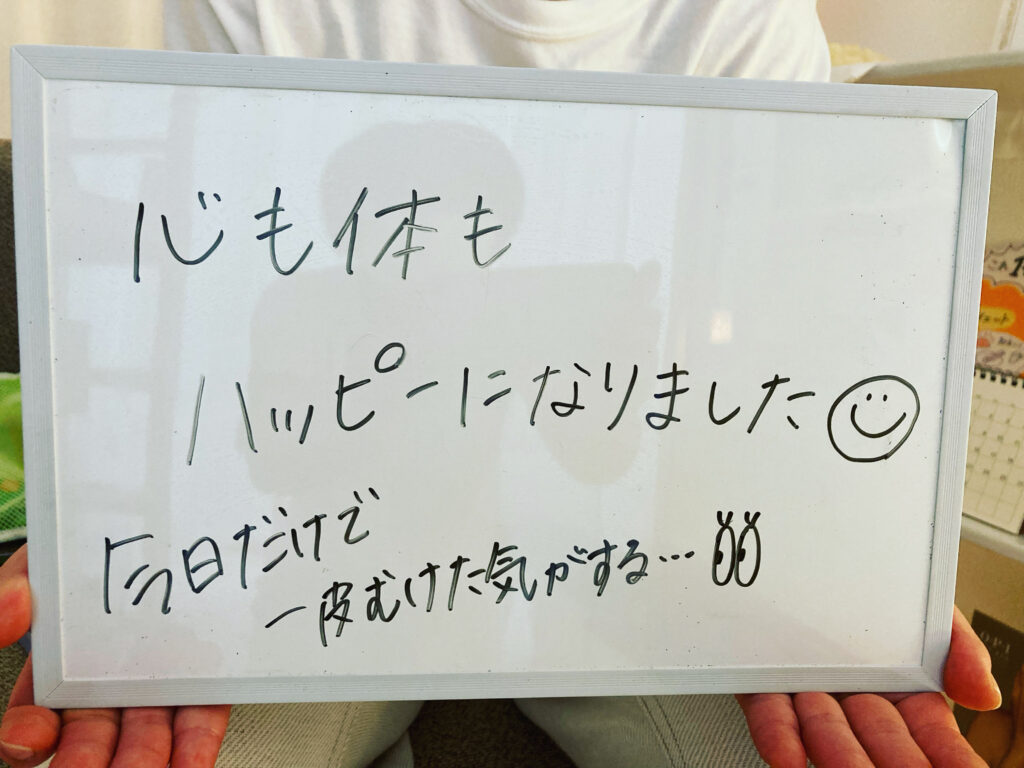 心も体も
ハッピーになりました
今日だけで
一皮むけた気がする…